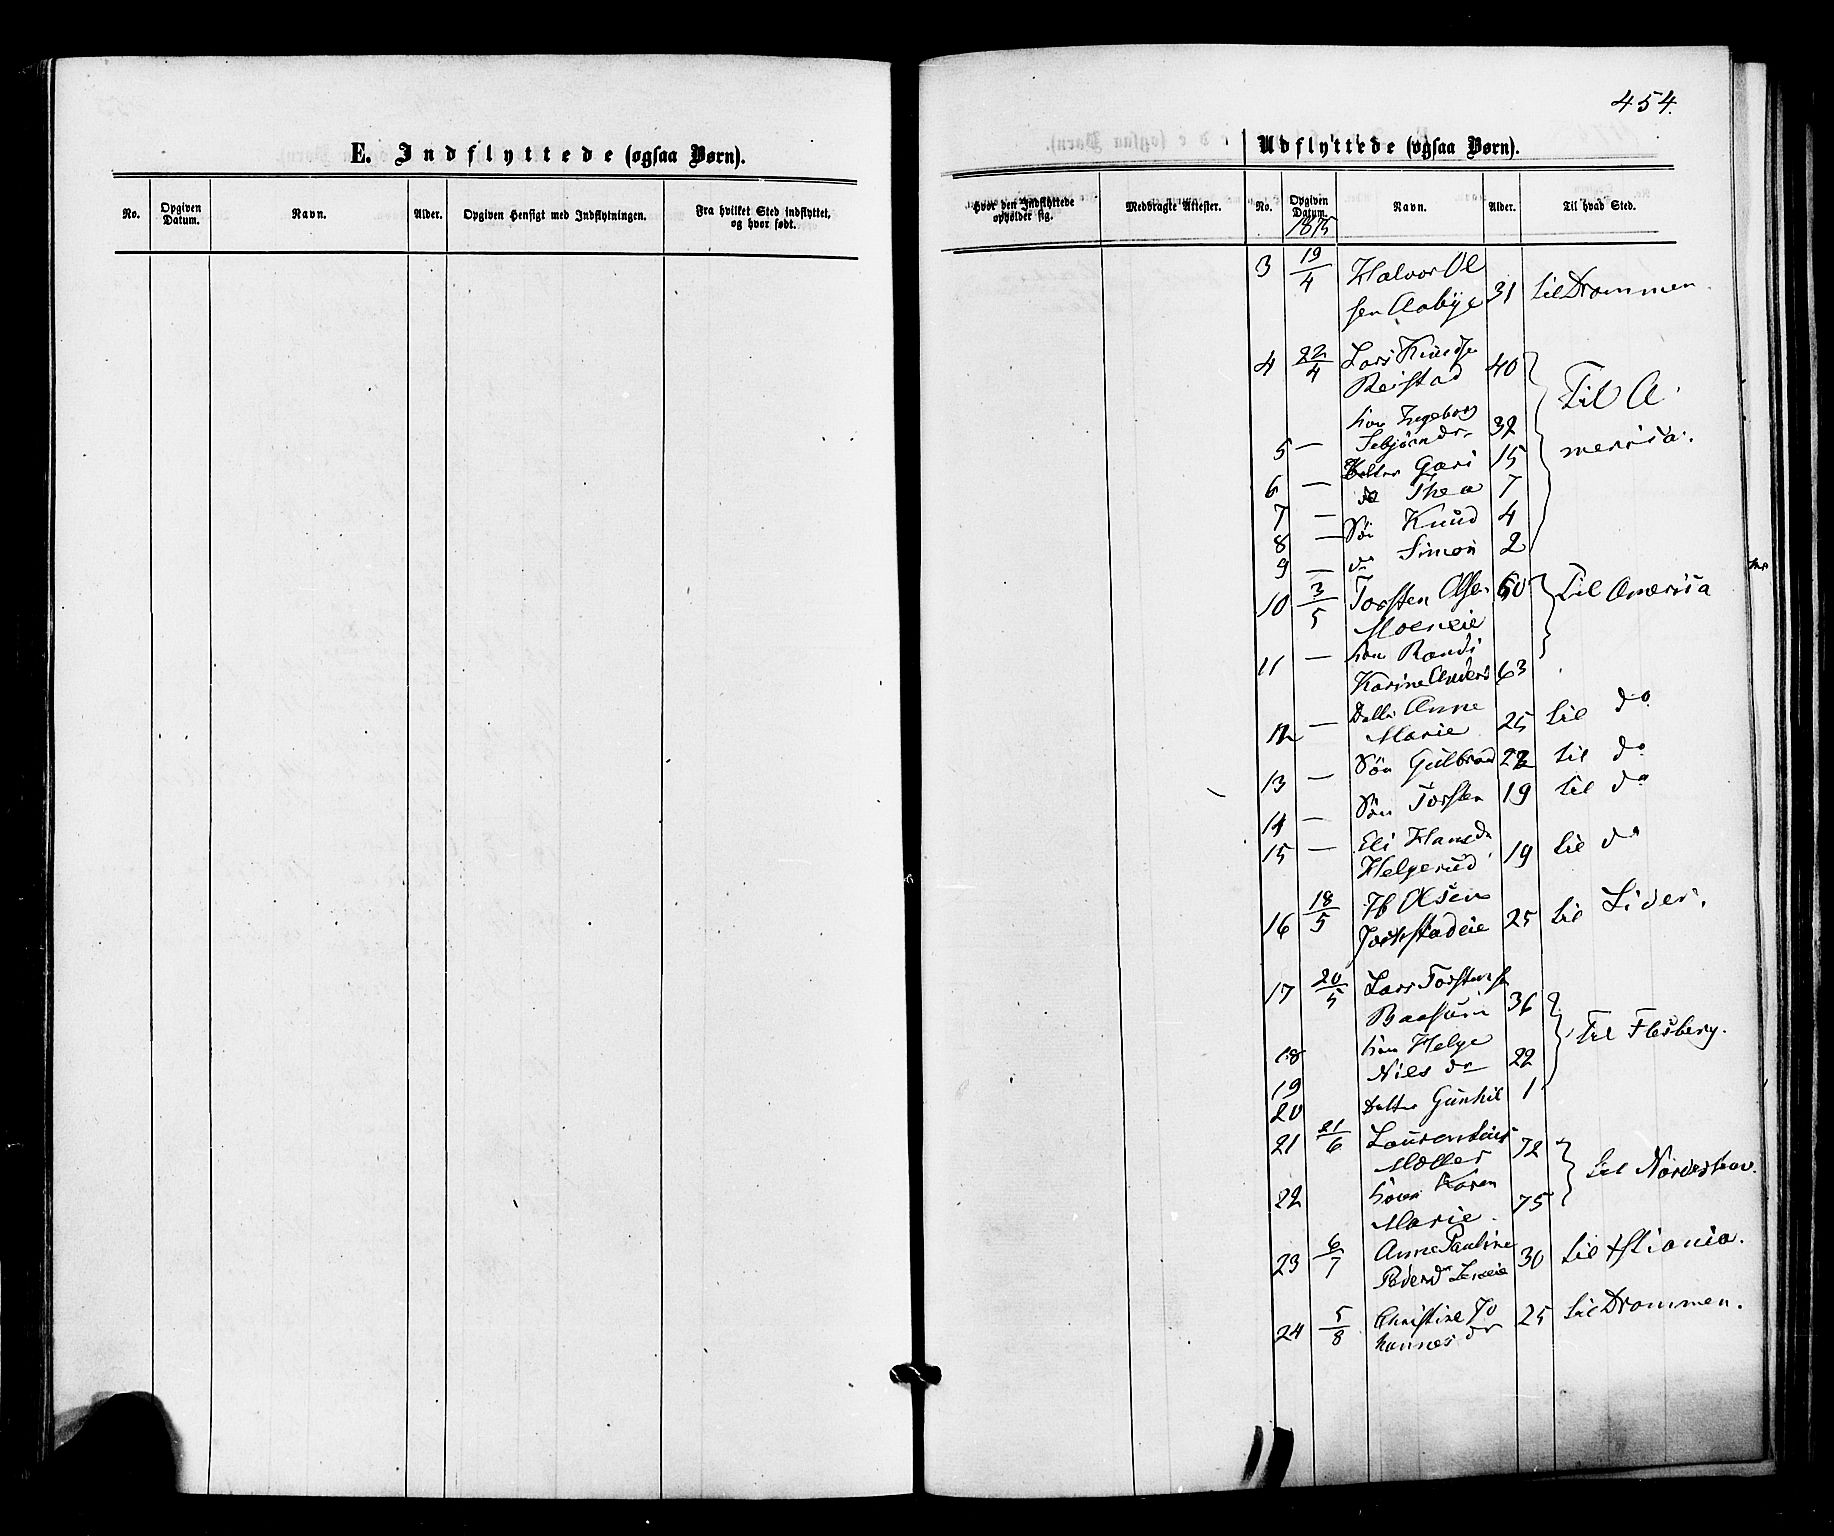 454.
E. Indflyttede (ogsaa Børn).
No. Opgiven Datum. Navn. Alder. Opgiven Hensigt med Indflytningen. Fra hvilket Sted indflyttet, og hvor født.
Udflyttede (ogsaa Børn).
Hvor den Indflyttede opholder sig. Medbragte Attester. No. Opgiven Datum. Navn. Alder. Til hvad Sted.
1875
3 19/4 Halvor Ol
sen Aabÿe 31 til Drammen.
4 22/4 Lars Knudse
Reistad 40 Til A
merica.
5 — hon Ingeborg
Sebjørndr 32
6 — Datter Gari 15
7 — do Thea 7
8 — Søn Knud 4
9 — do Simon 2
10 3/5 Torsten Olsen 60 Til America
Moeneie
11 — hon Randi
Karine Anders 63
12 — Datte Anne
Marie 25 til do
13 — Søn Gulbrand 22 til do
14 — Søn Torsten 19 til do
15 — Eli Hansdr
Helgerud 19 til do
16 18/5 If Olsen
25 til Lider.
17 20/5 Lars Torstens
36
18 hon Helge
Niels dr 22 Til Flesberg.
19
20 Datter Gunhil 1
21 21/6 Laurentius
Møller 72
22 honn Karen
Marie 75
23 6/7 Anne Pauline
Pedersd 30 til Xstiania.
24 5/8 Christine Jo
hannes dr 25 til Drammen.